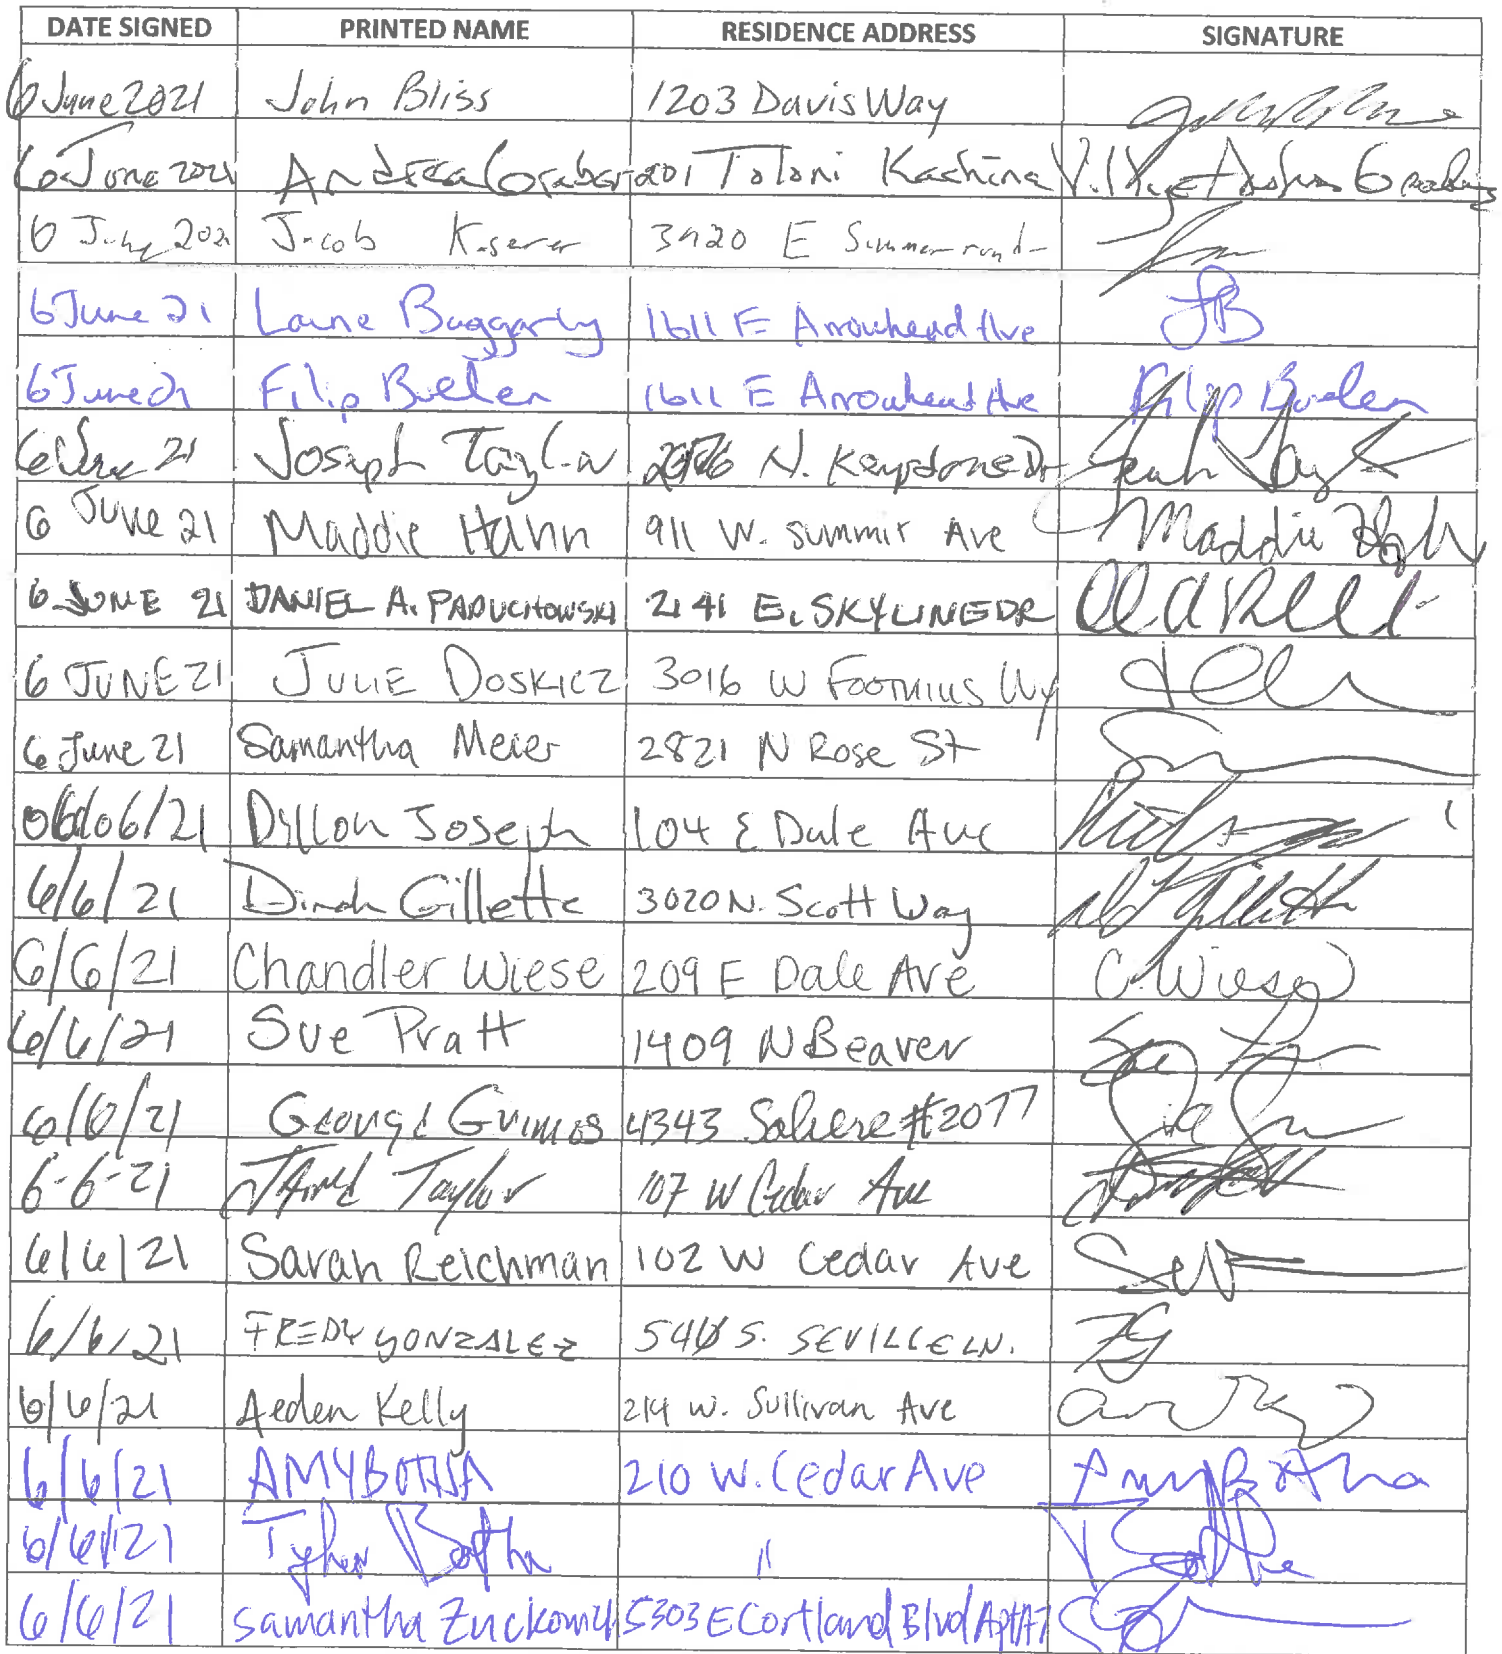 DATE SIGNED PRINTED NAME RESIDENCE ADDRESS SIGNATURE
6 June 2021 John Bliss 1203 Davis Way
6 June 2021 Andrea Graber 201 Toloni Kachina V.
6 June 2021 Jacob 3920 E
6 June 21 Laine Baggarly 1611 E Arrowhead Ave LB
6 June 21 Filip Buelen 1611 E Arrowhead Ave Filip Buelen
6 June 21 Joseph Taylor N. Keystone Dr
6 June 21 Maddie Hahn 911 W. Summit Ave Maddie
6 JUNE 21 DANIEL A. PADUCHOWSKI 2141 E. SKYLINE DR
6 JUNE 21 JULIE DOSKICZ 3016 W FOOTHILLS WY
6 June 21 Samantha Meier 2821 N Rose St
06/06/21 Dyllon Joseph 104 E Dale Ave
6/6/21 Dinah Gillette 3020 N. Scott Way Gillette
6/6/21 Chandler Wiese 209 E Dale Ave C. Wiese
6/6/21 Sue Pratt 1409 N Beaver Sue
6/6/21 George 4343 #2077
6-6-21 Taylor 107 W Cedar Ave
6/6/21 Sarah Reichman 102 W Cedar Ave
6/6/21 FREDY GONZALEZ 540 S. SEVILLE LN. FG
6/6/21 Aeden Kelly 214 W. Sullivan Ave
6/6/21 AMY BOTHA 210 W. Cedar Ave Amy Botha
6/6/21 Tyler Botha " T Botha
6/6/21 Samantha 5303 E Cortland Blvd Apt A7